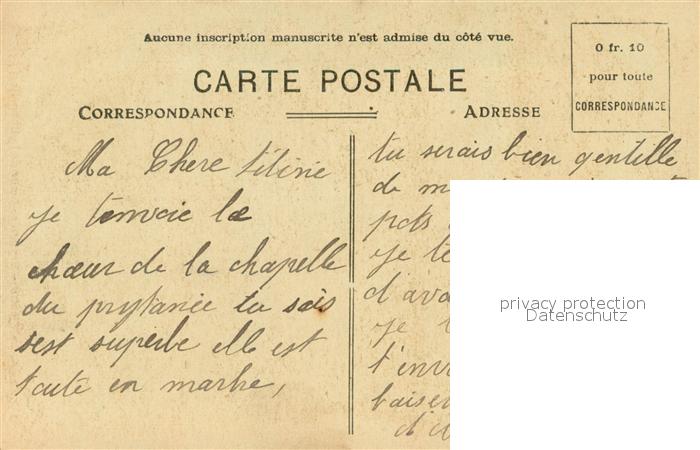 Aucune inscription manuscrite n'est admise du côté vue.
CARTE POSTALE
CORRESPONDANCE
ADRESSE
0 fr. 10
pour toute
CORRESPONDANCE
Ma Chere titine
je tenvoie le
chœur de la chapelle
du prytanée tu sais
sest superbe elle est
toute en marbre,
tu serais bien gentille
de
pots
je te
d'ava
je
t'env
baiser
privacy protection
Datenschutz